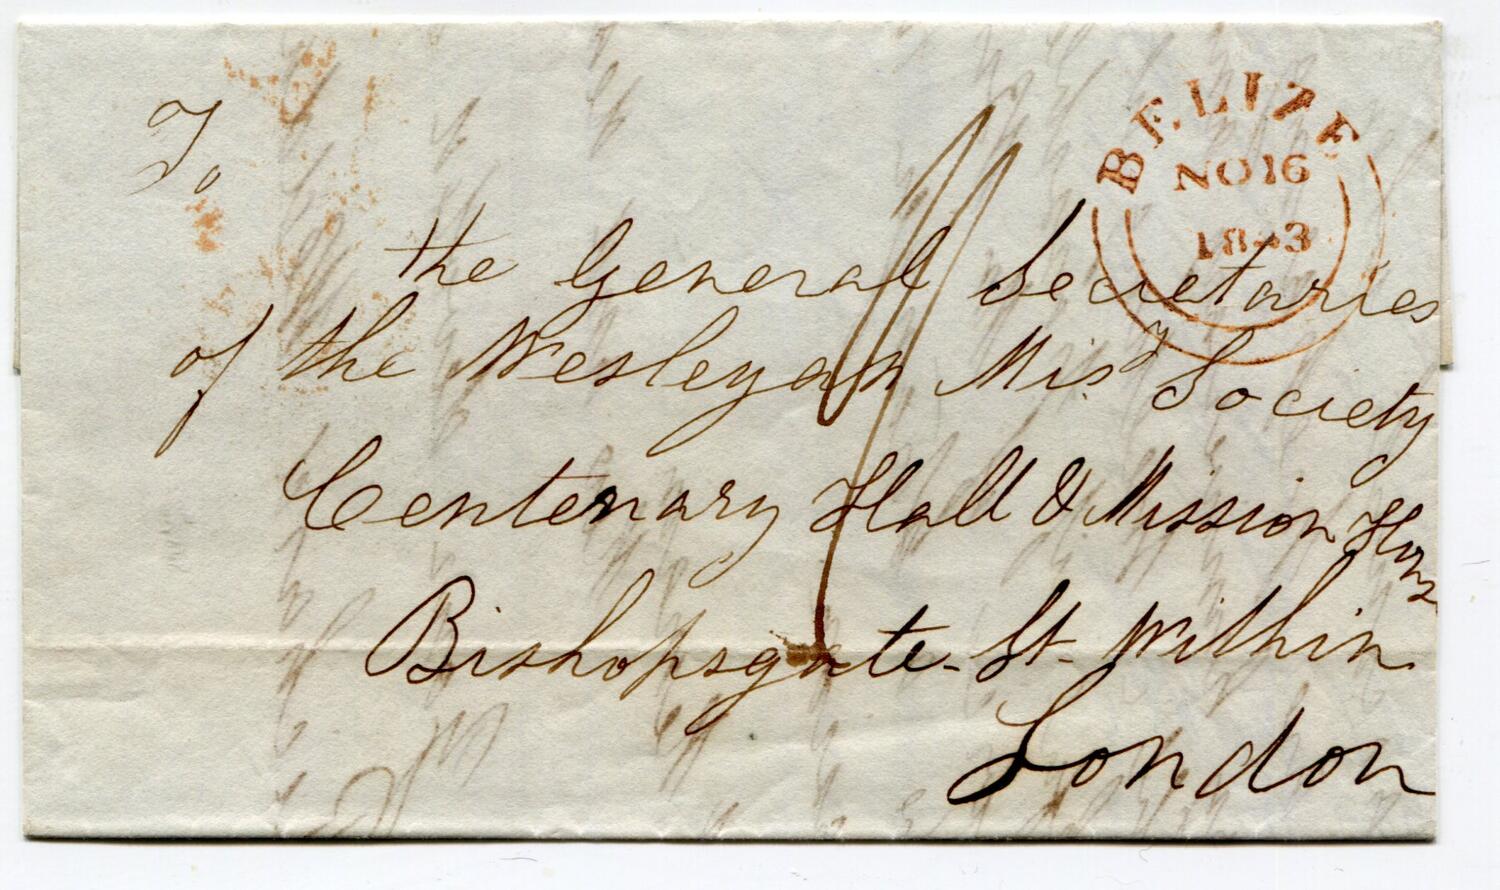 BELIZE
NO 16
1843
To
the General Secretaries
of the Wesleyan Misy Society
Centenary Hall & Mission House
Bishopsgate - St - Within
London